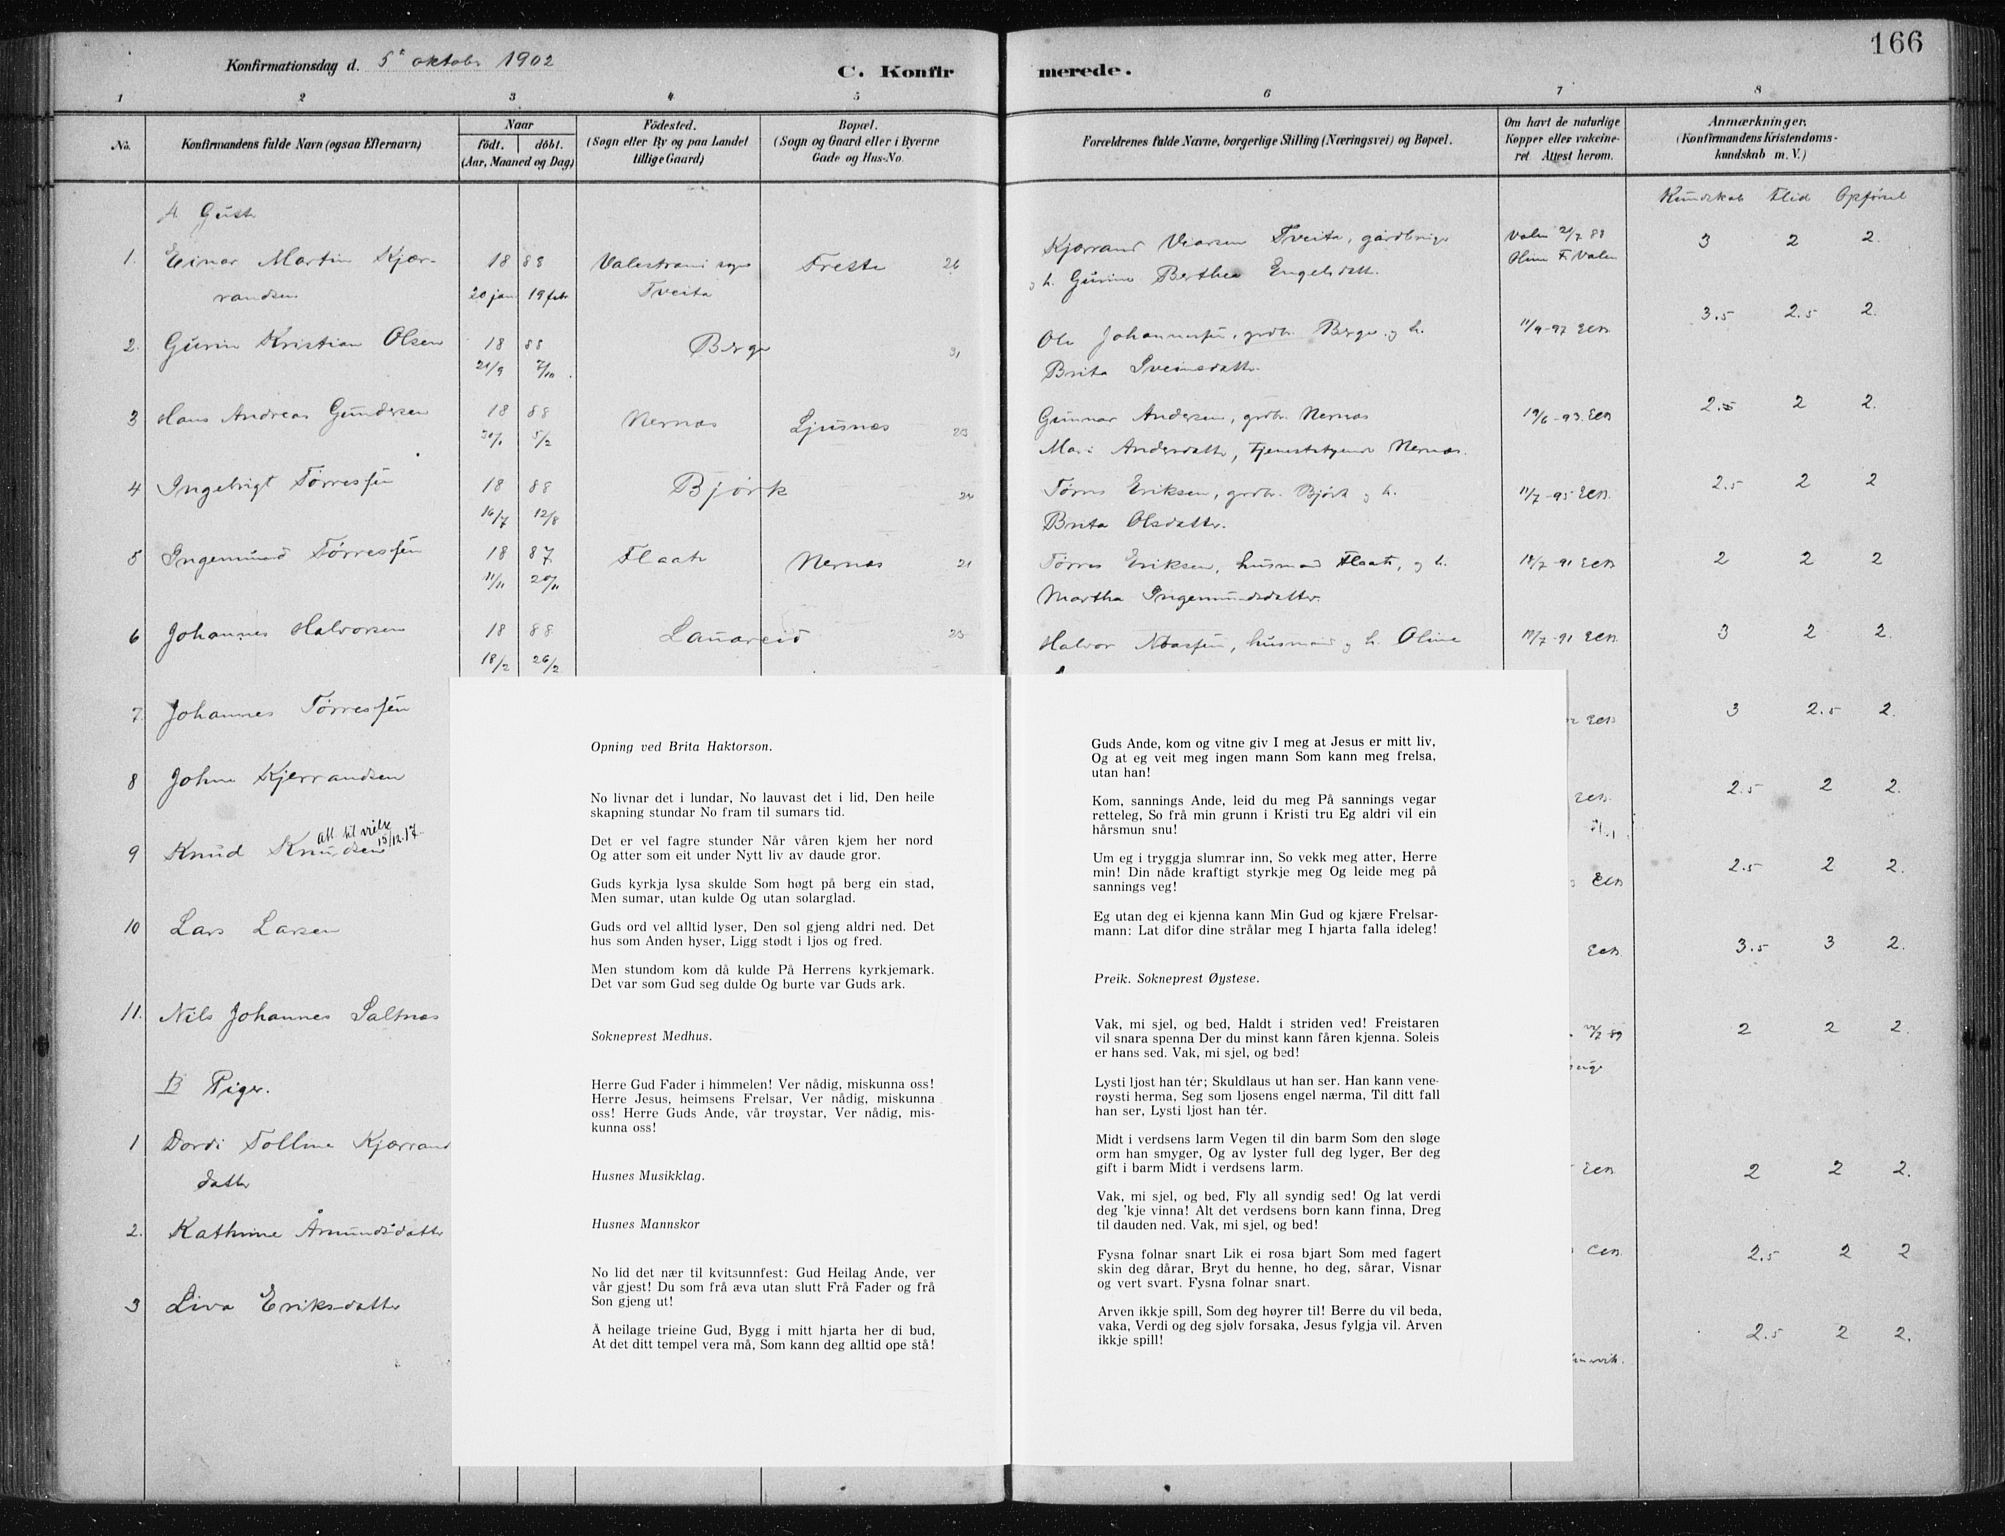 166
Konfirmationsdag d. 5te oktober 1902
C. Konfirmerede.
1 2 3 4 5 6 7 8
No.
Konfirmandens fulde Navn (ogsaa Efternavn)
Naar
født. døbt.
(Aar, Maaned og Dag)
Fødested.
(Sogn eller By og paa Landet
tillige Gaard)
Bopæl.
(Sogn og Gaard eller i Byerne
Gade og Hus-No.
Forældrenes fulde Navne, borgerlige Stilling (Næringsvei) og Bopæl.
Om havt de naturlige
Kopper eller vakcine-
ret Attest herom.
Anmærkninger.
(Konfirmandens Kristendoms-
kundskab m. V.)
Kundskab Flid Opførsel
A Gutter
1. Einar Martin Kjær- 18 88 Valestrand sogn Freste 26 Kjærand Viarsen Tveita, gårdbruger Valen 2/7 88 3 2 2.
randsen 20 jan 19 febr Tveita og h. Gurine Berthea Engelsdatt. Oline F. Valen
2. Gurin Kristian Olsen 18 88 Berge 31 Ola Johannessen, grdbr. Berge og h. 11/9-97 ECB 3.5 2.5 2.
21/9 7/10 Brita Sveinsdatter
3 Hans Andreas Gundersen 18 88 Nernæs Ljusnæs 23 Gunnar Andersen, grdbr. Nernæs 19/6-93 ECB 2.5 2 2.
30/1 5/2 Mari Andersdatter, tjenestetyende Nernæs.
4 Ingebrigt Tørressen 18 88 Bjørk 24 Tørres Eriksen, grdbr. Bjørk og h. 11/7-95 ECB 2.5 2 2
16/7 12/8 Brita Olsdatter.
5 Ingemund Tørressen 18 87 Flaate Nernæs 21 Tørres Eriksen, husmand Flaate, og h. 18/7-91 ECB 2 2 2
11/11 20/11 Martha Ingemundsdatter.
6 Johannes Halvorsen 18 88 Lauareid 23 Halvor husmand og h. Oline 18/7-91 ECB 3 2 2.
18/2 26/2
7. Johannes Tørressen ECB 3 2.5 2.
8 Johne Kjerrandsen ECB. 2.5 2 2.
att til vielse
15/12.17.
9 Knud Knudsen ECB 2.5 2 2.
10 Lars Larsen ECB. 3.5 3 2.
11. Nils Johannes Saltnæs 2 2 2.
B Piger.
1 Dordi Tolline Kjærrand ECB 2 2 2.
datter
2. Kathrine Åmundsdatter ECB. 2.5 2 2
3 Liva Eriksdatter 2.5 2 2.
Opning ved Brita Haktorson.
No livnar det i lundar, No lauvast det i lid, Den heile
skapning stundar No fram til sumars tid.
Det er vel fagre stunder Når våren kjem her nord
Og atter som eit under Nytt liv av daude gror.
Guds kyrkja lysa skulde Som høgt på berg ein stad,
Men sumar, utan kulde Og utan solarglad.
Guds ord vel alltid lyser, Den sol gjeng aldri ned. Det
hus som Anden hyser, Ligg stødt i ljos og fred.
Men stundom kom då kulde På Herrens kyrkjemark.
Det var som Gud seg dulde Og burte var Guds ark.
Sokneprest Medhus.
Herre Gud Fader i himmelen! Ver nådig, miskunna oss!
Herre Jesus, heimsens Frelsar, Ver nådig, miskunna
oss! Herre Guds Ande, vår trøystar, Ver nådig, mis-
kunna oss!
Husnes Musikklag.
Husnes Mannskor
No lid det nær til kvitsunnfest: Gud Heilag Ande, ver
vår gjest! Du som frå æva utan slutt Frå Fader og frå
Son gjeng ut!
Å heilage trieine Gud, Bygg i mitt hjarta her di bud,
At det ditt tempel vera må, Som kann deg alltid ope stå!
Guds Ande, kom og vitne giv I meg at Jesus er mitt liv,
Og at eg veit meg ingen mann Som kann meg frelsa,
utan han!
Kom, sannings Ande, leid du meg På sannings vegar
retteleg, So frå min grunn i Kristi tru Eg aldri vil ein
hårsmun snu!
Um eg i tryggja slumrar inn, So vekk meg atter, Herre
min! Din nåde kraftigt styrkje meg Og leide meg på
sannings veg!
Eg utan deg ei kjenna kann Min Gud og kjære Frelsar-
mann: Lat difor dine strålar meg I hjarta falla ideleg!
Preik. Sokneprest Øystese.
Vak, mi sjel, og bed, Haldt i striden ved! Freistaren
vil snara spenna Der du minst kann fåren kjenna. Soleis
er hans sed. Vak, mi sjel, og bed!
Lysti ljost han tér; Skuldlaus ut han ser. Han kann vene-
røysti herma, Seg som ljosens engel nærma, Til ditt fall
han ser, Lysti ljost han tér.
Midt i verdsens larm Vegen til din barm Som den sløge
orm han smyger, Og av lyster full deg lyger, Ber deg
gift i barm Midt i verdsens larm.
Vak, mi sjel, og bed, Fly all syndig sed! Og lat verdi
deg 'kje vinna! Alt det verdsens born kann finna, Dreg
til dauden ned. Vak, mi sjel, og bed!
Fysna folnar snart Lik ei rosa bjart Som med fagert
skin deg dårar, Bryt du henne, ho deg, sårar, Visnar
og vert svart. Fysna folnar snart.
Arven ikkje spill, Som deg høyrer til! Berre du vil beda,
vaka, Verdi og deg sjølv forsaka, Jesus fylgja vil. Arven
ikkje spill!